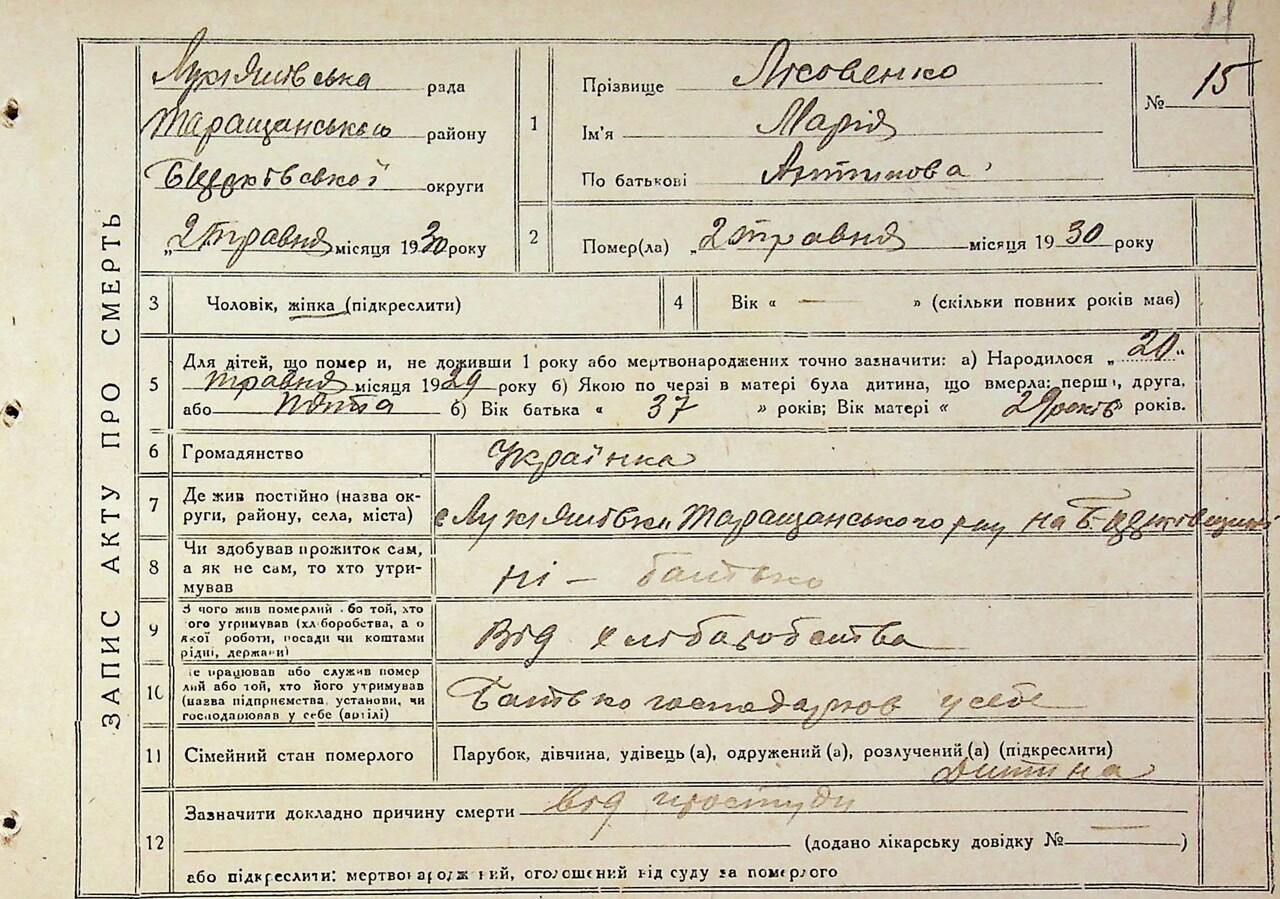 11
ЗАПИС АКТУ ПРО СМЕРТЬ
Лукяшівська рада
Таращанського району
Б Церківської округи
„2 травня місяця 1930 року
1
Прізвище Лісовенко
Ім'я Марія
По батькові Антипова
№ 15
2
Помер(ла) „2 травня місяця 1930 року
3
Чоловік, жінка (підкреслити)
4
Вік « — » (скільки повних років має)
5
Для дітей, що помер и, не доживши 1 року або мертвонароджених точно зазначити: а) Народилося „ 20 „
травня місяця 1929 року б) Якою по черзі в матері була дитина, що вмерла: перш, друга,
або пята б) Вік батька « 37 » років; Вік матері « 29 років » років.
6
Громадянство
Українка
7
Де жив постійно (назва ок-
руги, району, села, міста)
с Лукяшівки Таращанського рну на Б-Церківщині
8
Чи здобував прожиток сам,
а як не сам, то хто утри-
мував
ні — батько
9
З чого жив померлий бо той, хто
ого утримував (хл боробства, а о
якої роботи, посади чи коштами
рідні, держави)
Від хлібаробства
10
е працював або служив помер
лий або той, хто його утримував
(назва підприємства, установи, чи
господарював у себе (артілі)
Батько господарював у себе
11
Сімейний стан померлого
Парубок, дівчина, удівець (а), одружений (а), розлучений (а) (підкреслити)
Дитина
12
Зазначити докладно причину смерти від простуди
(додано лікарську довідку № — )
або підкреслити: мертвонароджений, оголошений від суду за померлого